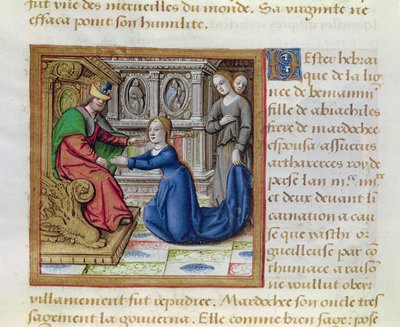 fut vne des merueilles du monde. Sa virginite ne
effaca point son humilite.
Ester hebrai
que de la lig
nee de beniamin
fille de abrachiles
frere de mardochee
espousa assuerus
arthaxerces roy de
perse lan m.
et deux deuant li
carnation a cau
se que vasthi or
gueilleuse par co
thumace a raiso
ne voullut obey
r villainement fut repudiee. Mardochee son oncle tres
sagement la gouuerna. Elle comme bien sage: pose